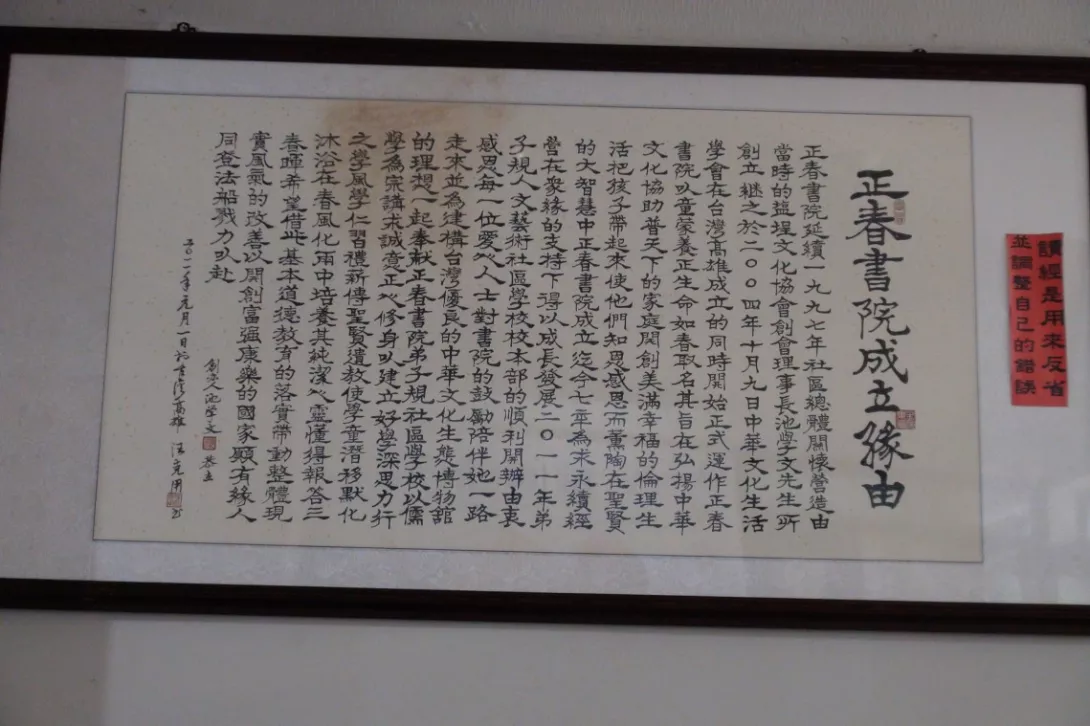 讀經是用來反省
並調整自己的錯誤
正春書院成立緣由
正春書院延續一九九七年社區總體關懷營造由
當時的鹽埕文化協會創會理事長池學文先生所
創立繼之於二００四年十月九日中華文化生活
學會在台灣高雄成立的同時開始正式運作正春
書院以童蒙養正生命如春取名其旨在弘揚中華
文化協助普天下的家庭開創美滿幸福的倫理生
活把孩子帶起來使他們知恩感恩而薰陶在聖賢
的大智慧中正春書院成立迄今七年為求永續經
營在衆緣的支持下得以成長發展二０一一年弟
子規人文藝術社區學校校本部的順利開辦由衷
感恩每一位愛心人士對書院的鼓勵陪伴她一路
走來並為建構台灣優良的中華文化生態博物館
的理想一起奉獻正春書院弟子規社區學校以儒
學為宗講求誠意正心修身以建立好學深思力行
之學風學仁習禮薪傳聖賢遺教使學童潛移默化
沐浴在春風化雨中培養其純潔心靈懂得報答三
春暉希望借此基本道德教育的落實帶動整體現
實風氣的改善以開創富强康樂的國家願有緣人
同登法船戮力以赴
創文池學文恭立
二０一一年元月一日於台灣高雄